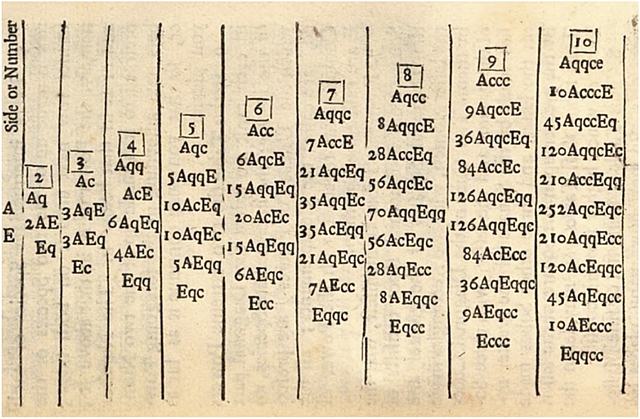 Side or Number
A
E
2
Aq
2AE
Eq
3
Ac
3AqE
3AEq
Ec
4
Aqq
AcE
6AqEq
4AEc
Eqq
5
Aqc
5AqqE
10AcEq
10AqEc
5AEqq
Eqc
6
Acc
6AqcE
15AqqEq
20AcEc
15AqEqq
6AEqc
Ecc
7
Aqqc
7AccE
21AqcEq
35AqqEc
35AcEqq
21AqEqc
7AEcc
Eqqc
8
Aqcc
8AqqcE
28AccEq
56AqcEc
70AqqEqq
56AcEqc
28AqEcc
8AEqqc
Eqcc
9
Accc
9AqccE
36AqqcEq
84AccEc
126AqcEqq
126AqqEqc
84AcEcc
36AqEqqc
9AEqcc
Eccc
10
Aqqce
10AcccE
45AqccEq
120AqqcEc
210AccEqq
252AqcEqc
210AqqEcc
120AcEqqc
45AqEqcc
10AEccc
Eqqcc